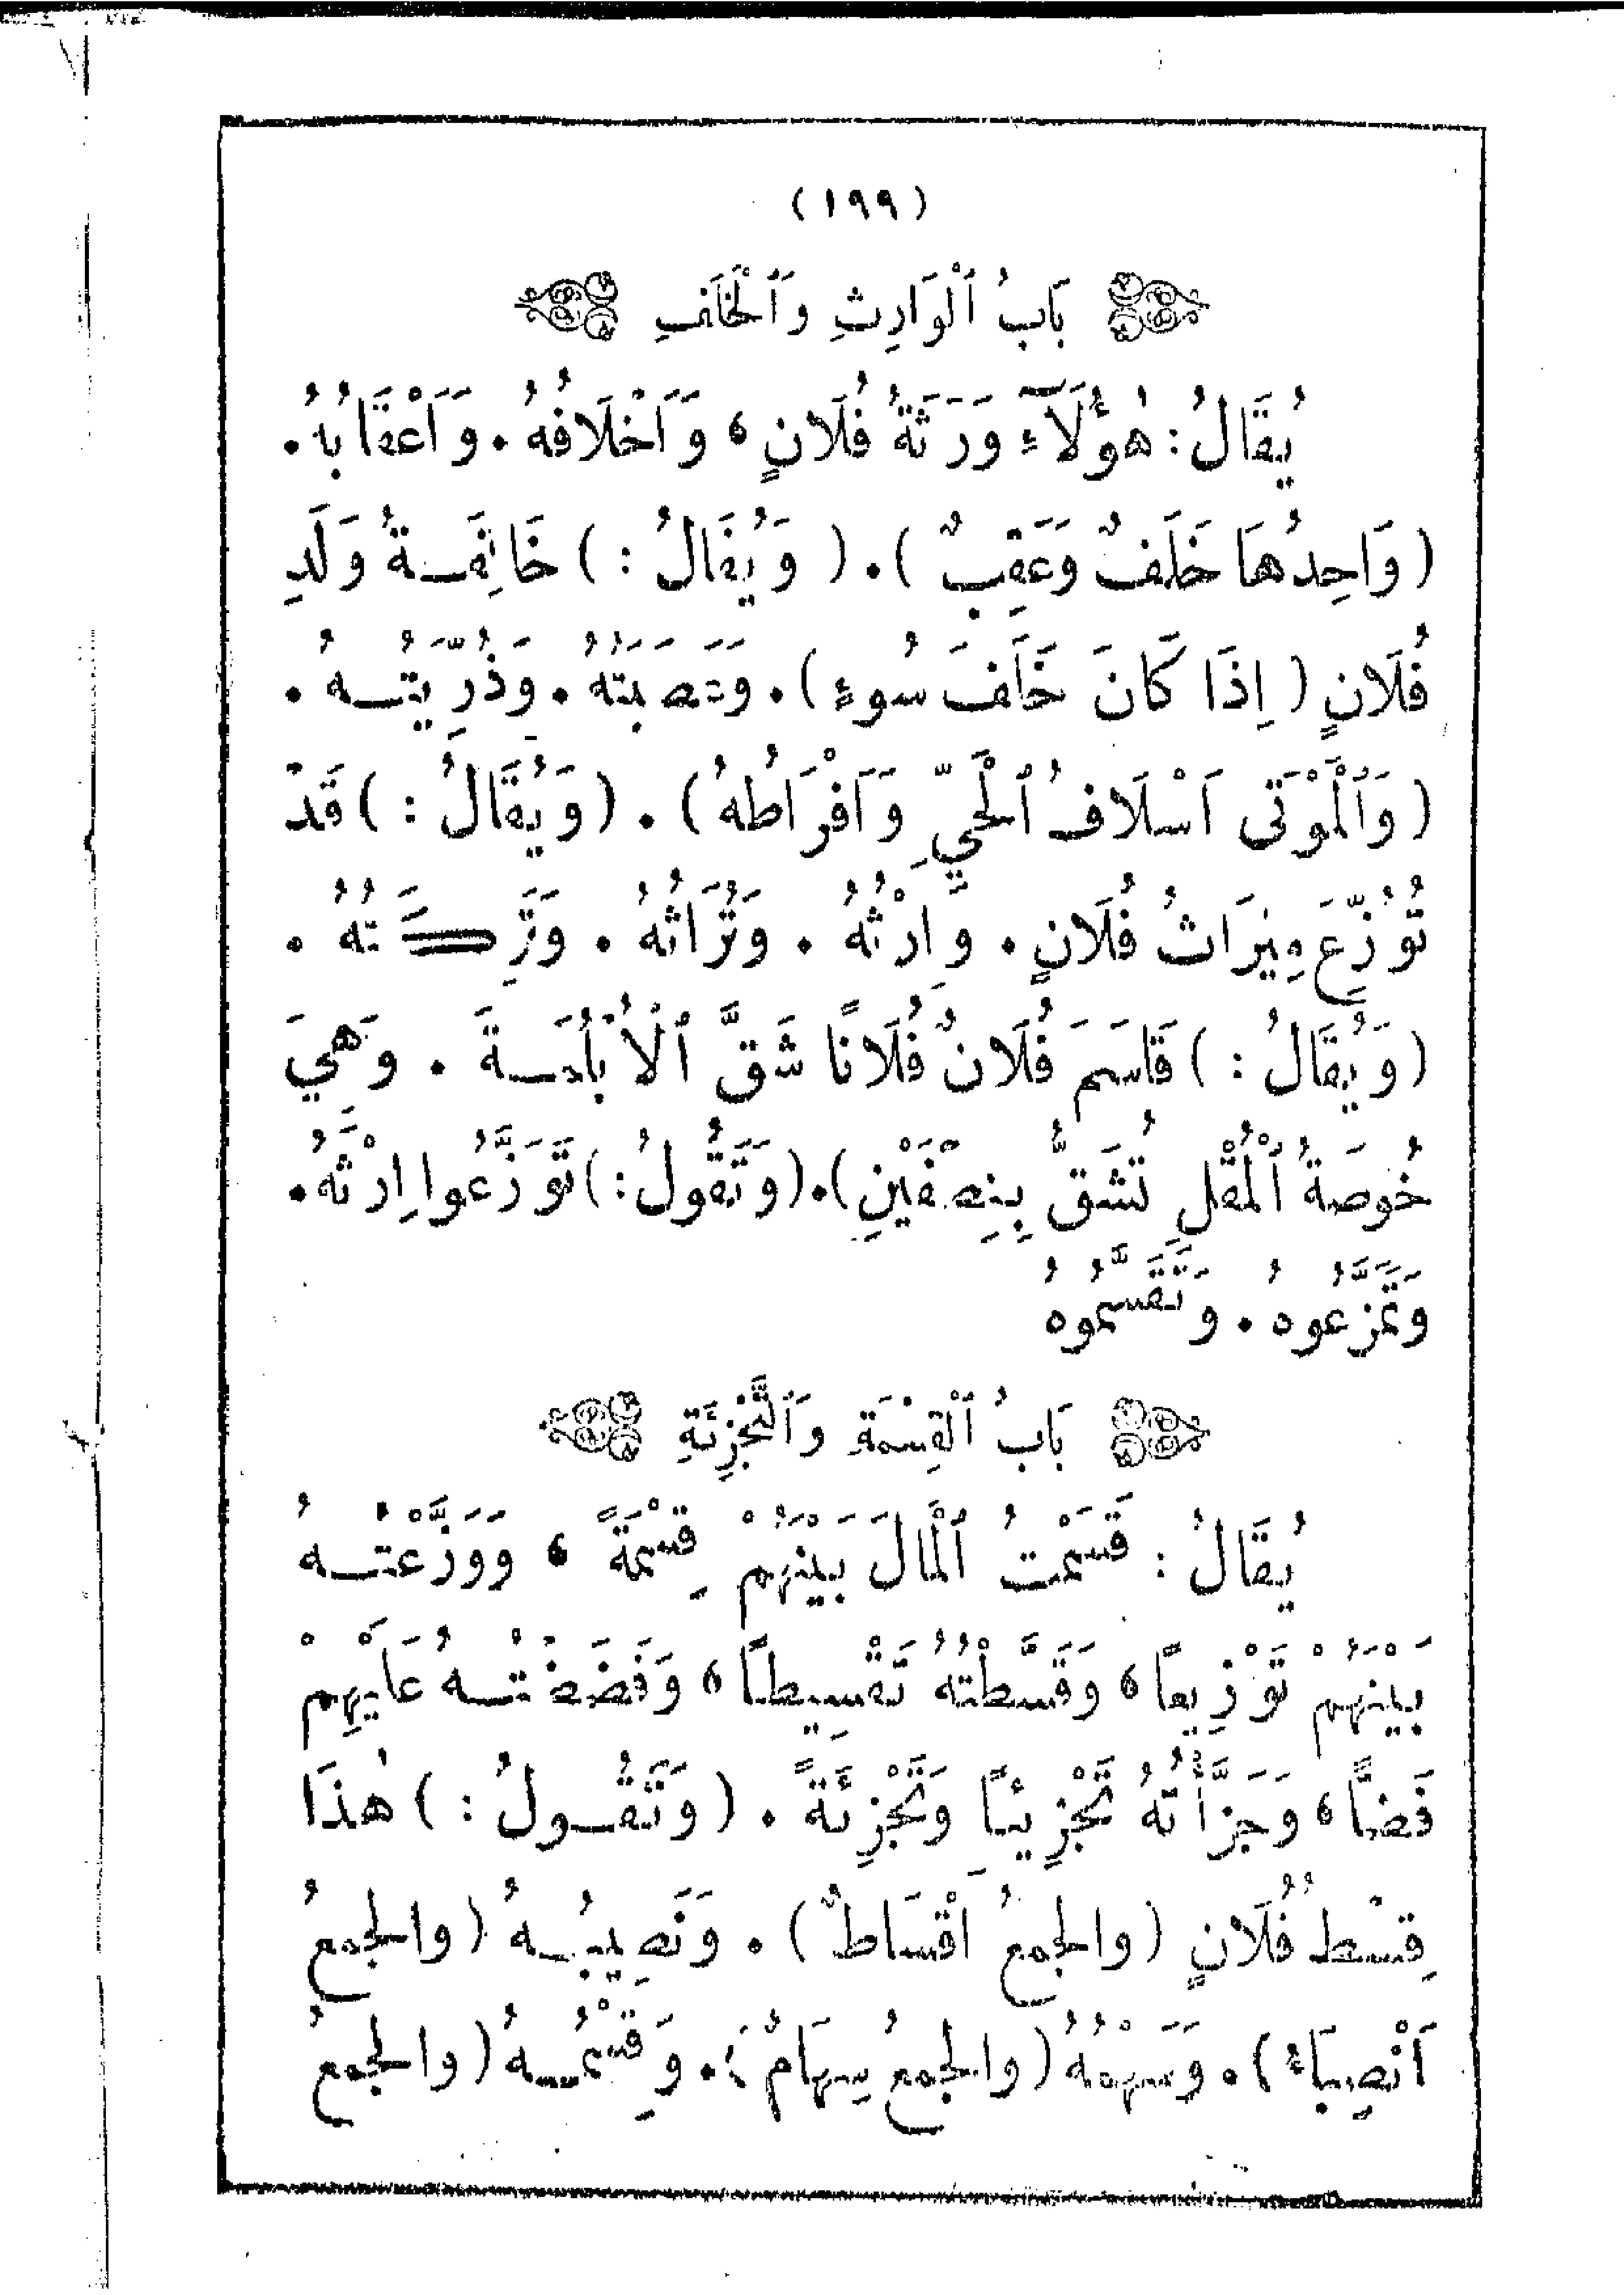 (١٩٩)
بَابُ ٱلْوَارِثِ وَٱلْخَلَفِ
يُقَالُ: هٰؤُلَآءِ وَرَثَةُ فُلَانٍ، وَاَخْلَافُهُ. وَاَعْقَابُهُ.
(وَاحِدُهَا خَلَفٌ وَعَقِبٌ). (وَيُقَالُ:) خَالِفَةُ وَلَدِ
فُلَانٍ (اِذَا كَانَ خَلَفَ سُوءٍ). وَعَصَبَتُهُ. وَذُرِّيَّتُهُ.
(وَٱلْمَوْتَى اَسْلَافُ ٱلْحَيِّ وَاَفْرَاطُهُ). (وَيُقَالُ:) قَدْ
تُوُزِّعَ مِيرَاثُ فُلَانٍ. وَاِرْثُهُ. وَتُرَاثُهُ. وَتَرِكَتُهُ.
(وَيُقَالُ:) قَاسَمَ فُلَانٌ فُلَانًا شَقَّ ٱلْأُبْلُمَةَ. وَهِيَ
خُوصَةُ ٱلْمُقْلِ تُشَقُّ بِنِصْفَيْنِ). (وَتَقُولُ:) تَوَزَّعُوا اِرْثَهُ.
وَتَمَزَّعُوهُ. وَتَقَسَّمُوهُ
بَابُ ٱلْقِسْمَةِ وَٱلتَّجْزِئَةِ
يُقَالُ: قَسَمْتُ ٱلْمَالَ بَيْنَهُمْ قِسْمَةً، وَوَزَّعْتُهُ
بَيْنَهُمْ تَوْزِيعًا، وَقَسَّطْتُهُ تَقْسِيطًا، وَفَضَضْتُهُ عَلَيْهِمْ
فَضًّا، وَجَزَّأْتُهُ تَجْزِيئًا وَتَجْزِئَةً. (وَتَقُولُ:) هٰذَا
قِسْطُ فُلَانٍ (والجمعُ اَقْسَاطٌ). وَنَصِيبُهُ (والجمعُ
اَنْصِبَاءُ). وَسَهْمُهُ (والجمعُ سِهَامٌ). وَقِسْمُهُ (والجمعُ